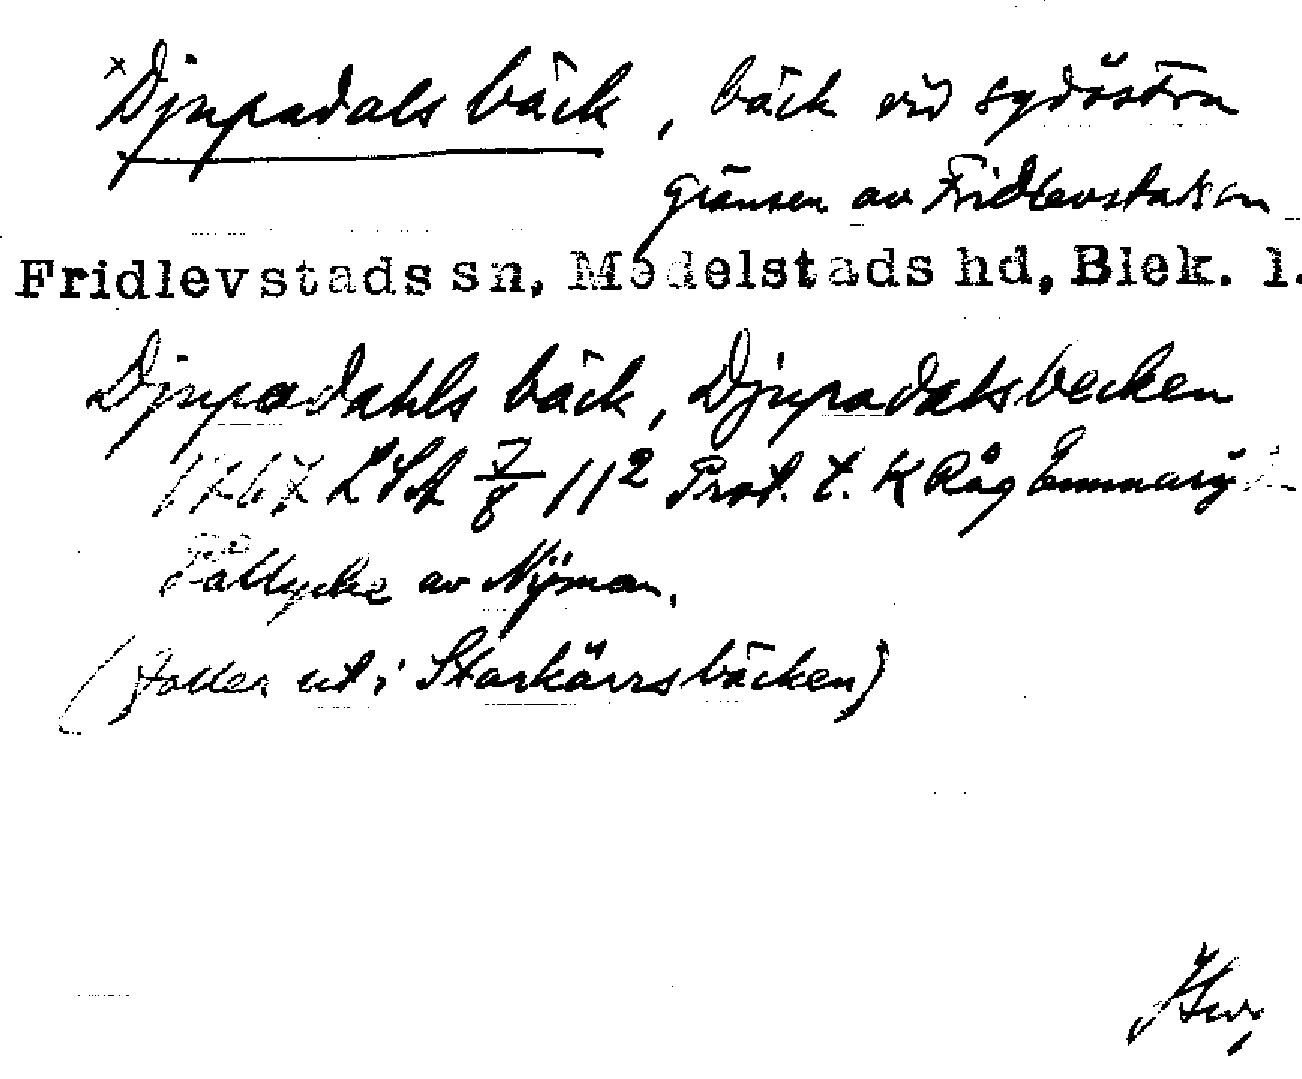 ×Djupadals bäck, bäck vid sydöstra
gränsen av Fridlevstads sn
Fridlevstads sn, Medelstads hd, Blek. l.
Djupadahls bäck, Djupadalsbecken
1767 LSA 7/8 11² Prot. t. K Råg
Tållycke av Nyman.
(faller ut i Starkärrsbäcken)